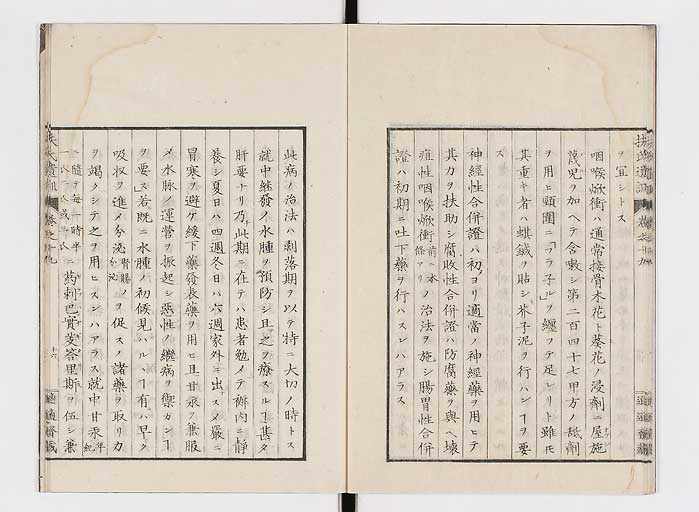 扶氏遺訓 卷之十九
ヲ宜シトス
咽喉焮衝ハ通常接骨木花ト葵花ノ浸劑ニ屋施
蔑兒ヲ加ヘテ含嗽シ第二百四十七甲方ノ舐劑
ヲ用ヒ頸圍ニ「フラ子ル」ヲ纏フテ足レリト雖モ
其重キ者ハ蜞鍼ヲ貼シ芥子泥ヲ行ハンヿヲ要ス
神經性合併證ハ初ヨリ適當ノ神經藥ヲ用ヒテ
其力ヲ扶助シ腐敗性合併證ハ防腐藥ヲ與ヘ壞
疽性咽喉焮衝前ノ本條ニアリノ治法ヲ施シ腸胃性合併
證ハ初期ニ吐下藥ヲ行ハスンハアラス
此病ノ治法ハ剥落期ヲ以テ特ニ大切ノ時トス
就中繼發ノ水腫ヲ預防シ且之ヲ療スルヿ甚タ
肝要ナリ乃チ此期ニ在テハ患者勉メテ褥內ニ靜
養シ夏日ハ四週冬日ハ六週家外ニ出スヿ嚴ニ
冒寒ヲ避ケ緩下藥發表藥ヲ用ヒ且甘汞ヲ兼服
メ水脉ノ運營ヲ振起シ惡性ノ繼病ヲ禦カンヿ
ヲ要ス若既ニ水腫ノ初候見ハルヽヿ有ハ早ク
吸收ヲ進メ分泌腎ノ分泌ヲ促スノ諸藥ヲ取リ力
ヲ竭クシテ之ヲ用ヒスンハアラス就中甘汞年紀
ニ隨ヒ每一時半藥刺巴實芰答里斯ヲ伍シ兼
扶氏遺訓 卷之十九 十六 適適齋藏